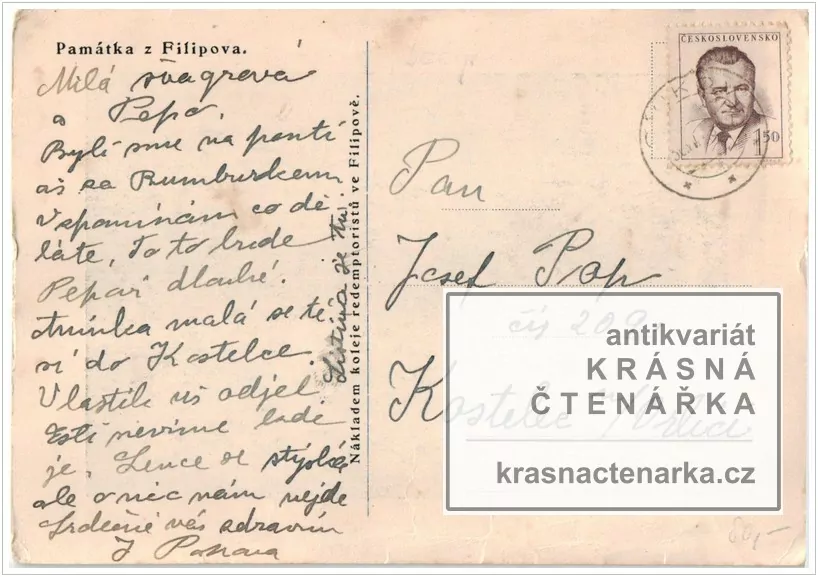 Památka z Filipova.
Milá švagrová
a Pepo.
Byli sme na pouti
až za Rumburkem
Vspomínám co dě
láte, To to bude
Pepovi dlouhé.
malá se tě
ší do Kostelce.
Vlastík už odjel
Esli nevíme kde
je, Lence se stýská
ale o nic nám nejde
Srdečně vás zdravím
J
Nákladem koleje redemptoristů ve Filipově.
ČESKOSLOVENSKO
1 50
Pan
Josef Pop
čís 209
Kostelec n/Orlicí
antikvariát
KRÁSNÁ
ČTENÁŘKA
krasnactenarka.cz
80,-